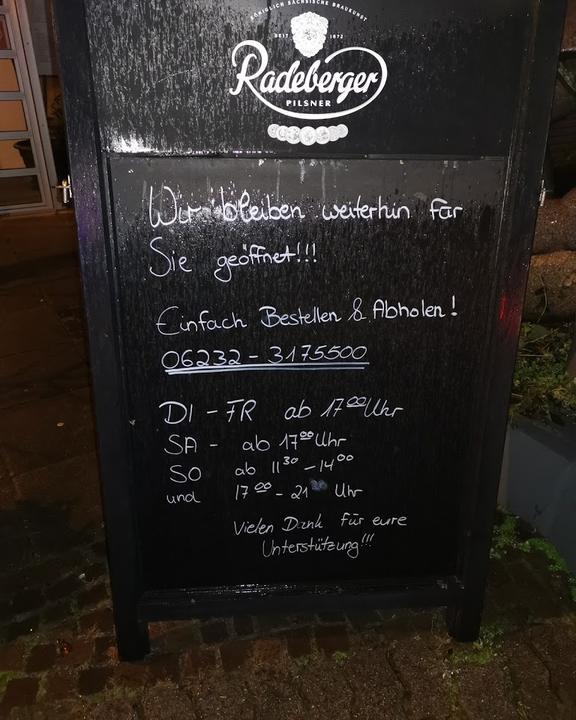 KÖNIGLICH SÄCHSISCHE BRAUKUNST
SEIT 1872
Radeberger
PILSNER
Wir bleiben weiterhin für
Sie geöffnet!!!
Einfach Bestellen & Abholen!
06232 - 3175500
DI - FR ab 17⁰⁰ Uhr
SA - ab 17⁰⁰ Uhr
SO ab 11³⁰ - 14⁰⁰
und 17⁰⁰ - 21 Uhr
Vielen Dank für eure
Unterstützung!!!